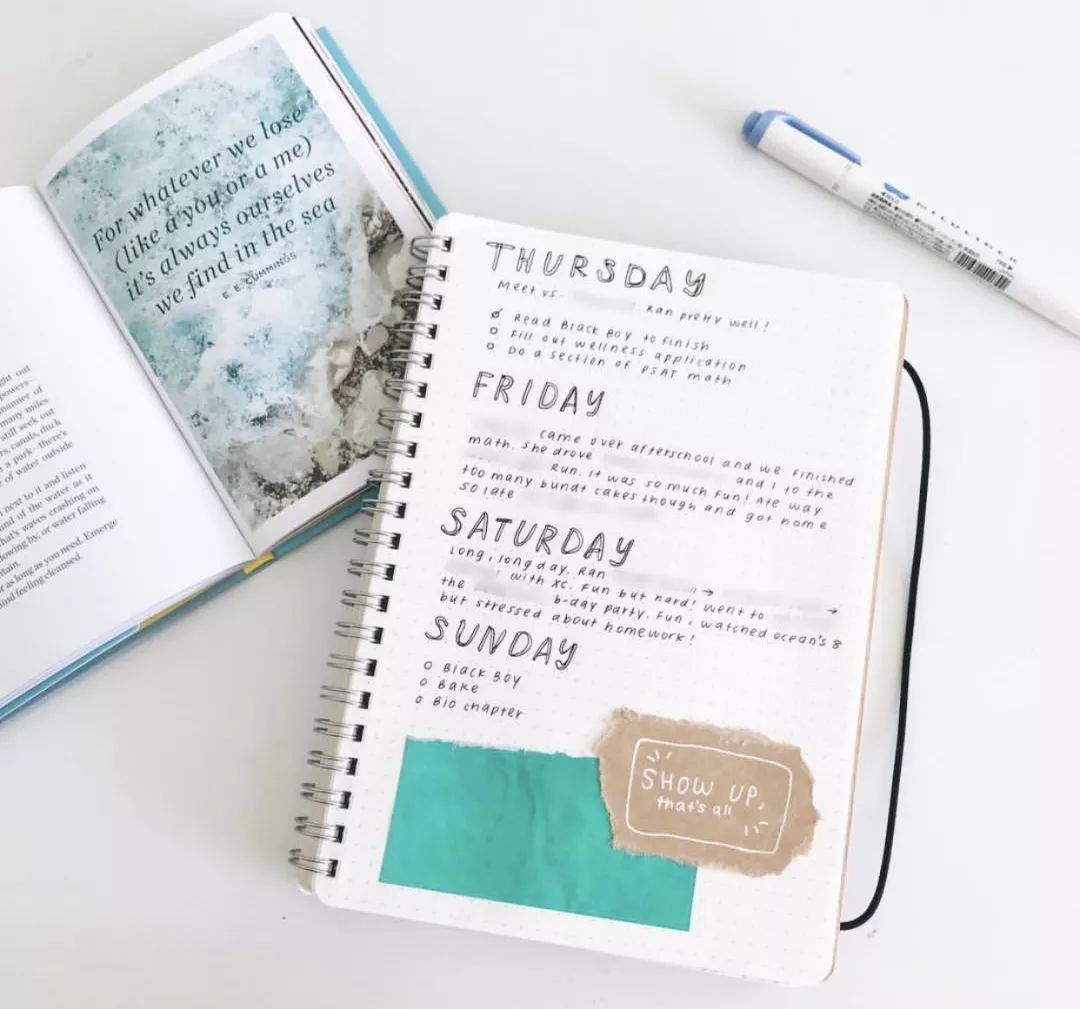 For whatever we lose
(like a you or a me)
it's always ourselves
we find in the sea
E. E. CUMMINGS
ght out
powers—
manner of
many miles
still seek out
rs, canals, duck
a park—there's
of water outside
next to it and listen
und of the water as it
that's waves crashing on
lowing by, or water falling
ntain.
r as long as you need. Emerge
ind feeling cleansed.
THURSDAY
Meet vs. Ran pretty well!
Read Black Boy to finish
Fill out wellness application
Do a section of PSAT math
FRIDAY
came over afterschool and we finished
math. She drove and I to the
Run. It was so much fun! Ate way
too many bundt cakes though and got home
so late
SATURDAY
Long, long day. Ran →
! with XC. Fun but hard! Went to →
the b-day party. Fun, watched ocean's 8
but stressed about homework!
SUNDAY
Black Boy
Bake
Bio chapter
SHOW UP,
that's all
MILDLINER